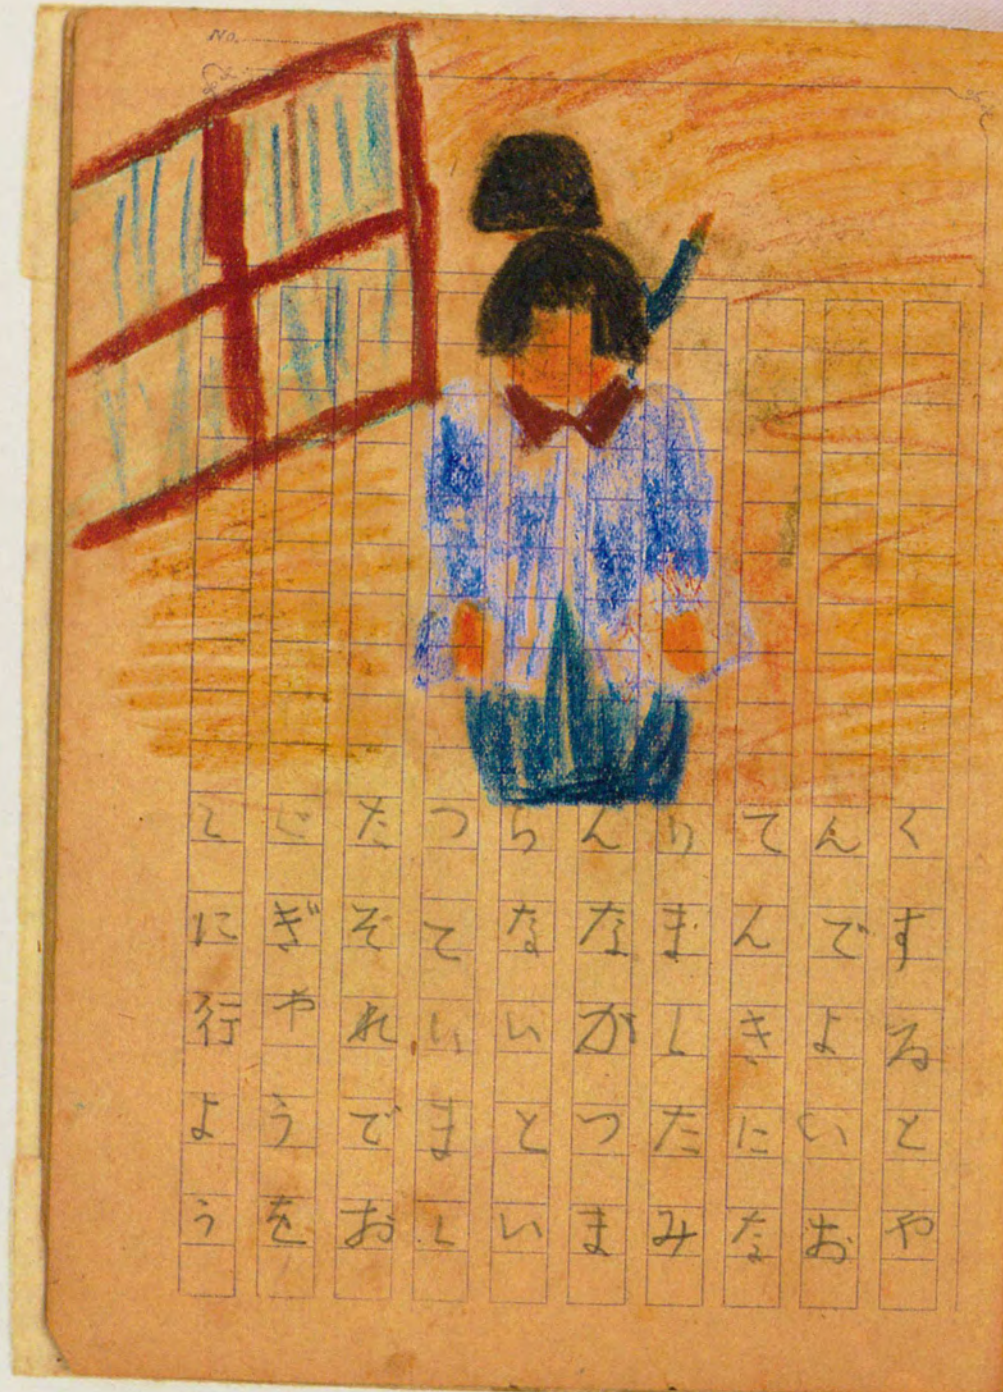 No.
くするとや
んでよいお
てんきにな
りましたみ
んながつま
らないとい
つていまし
たそれでお
ごぎやうを
とに行よう